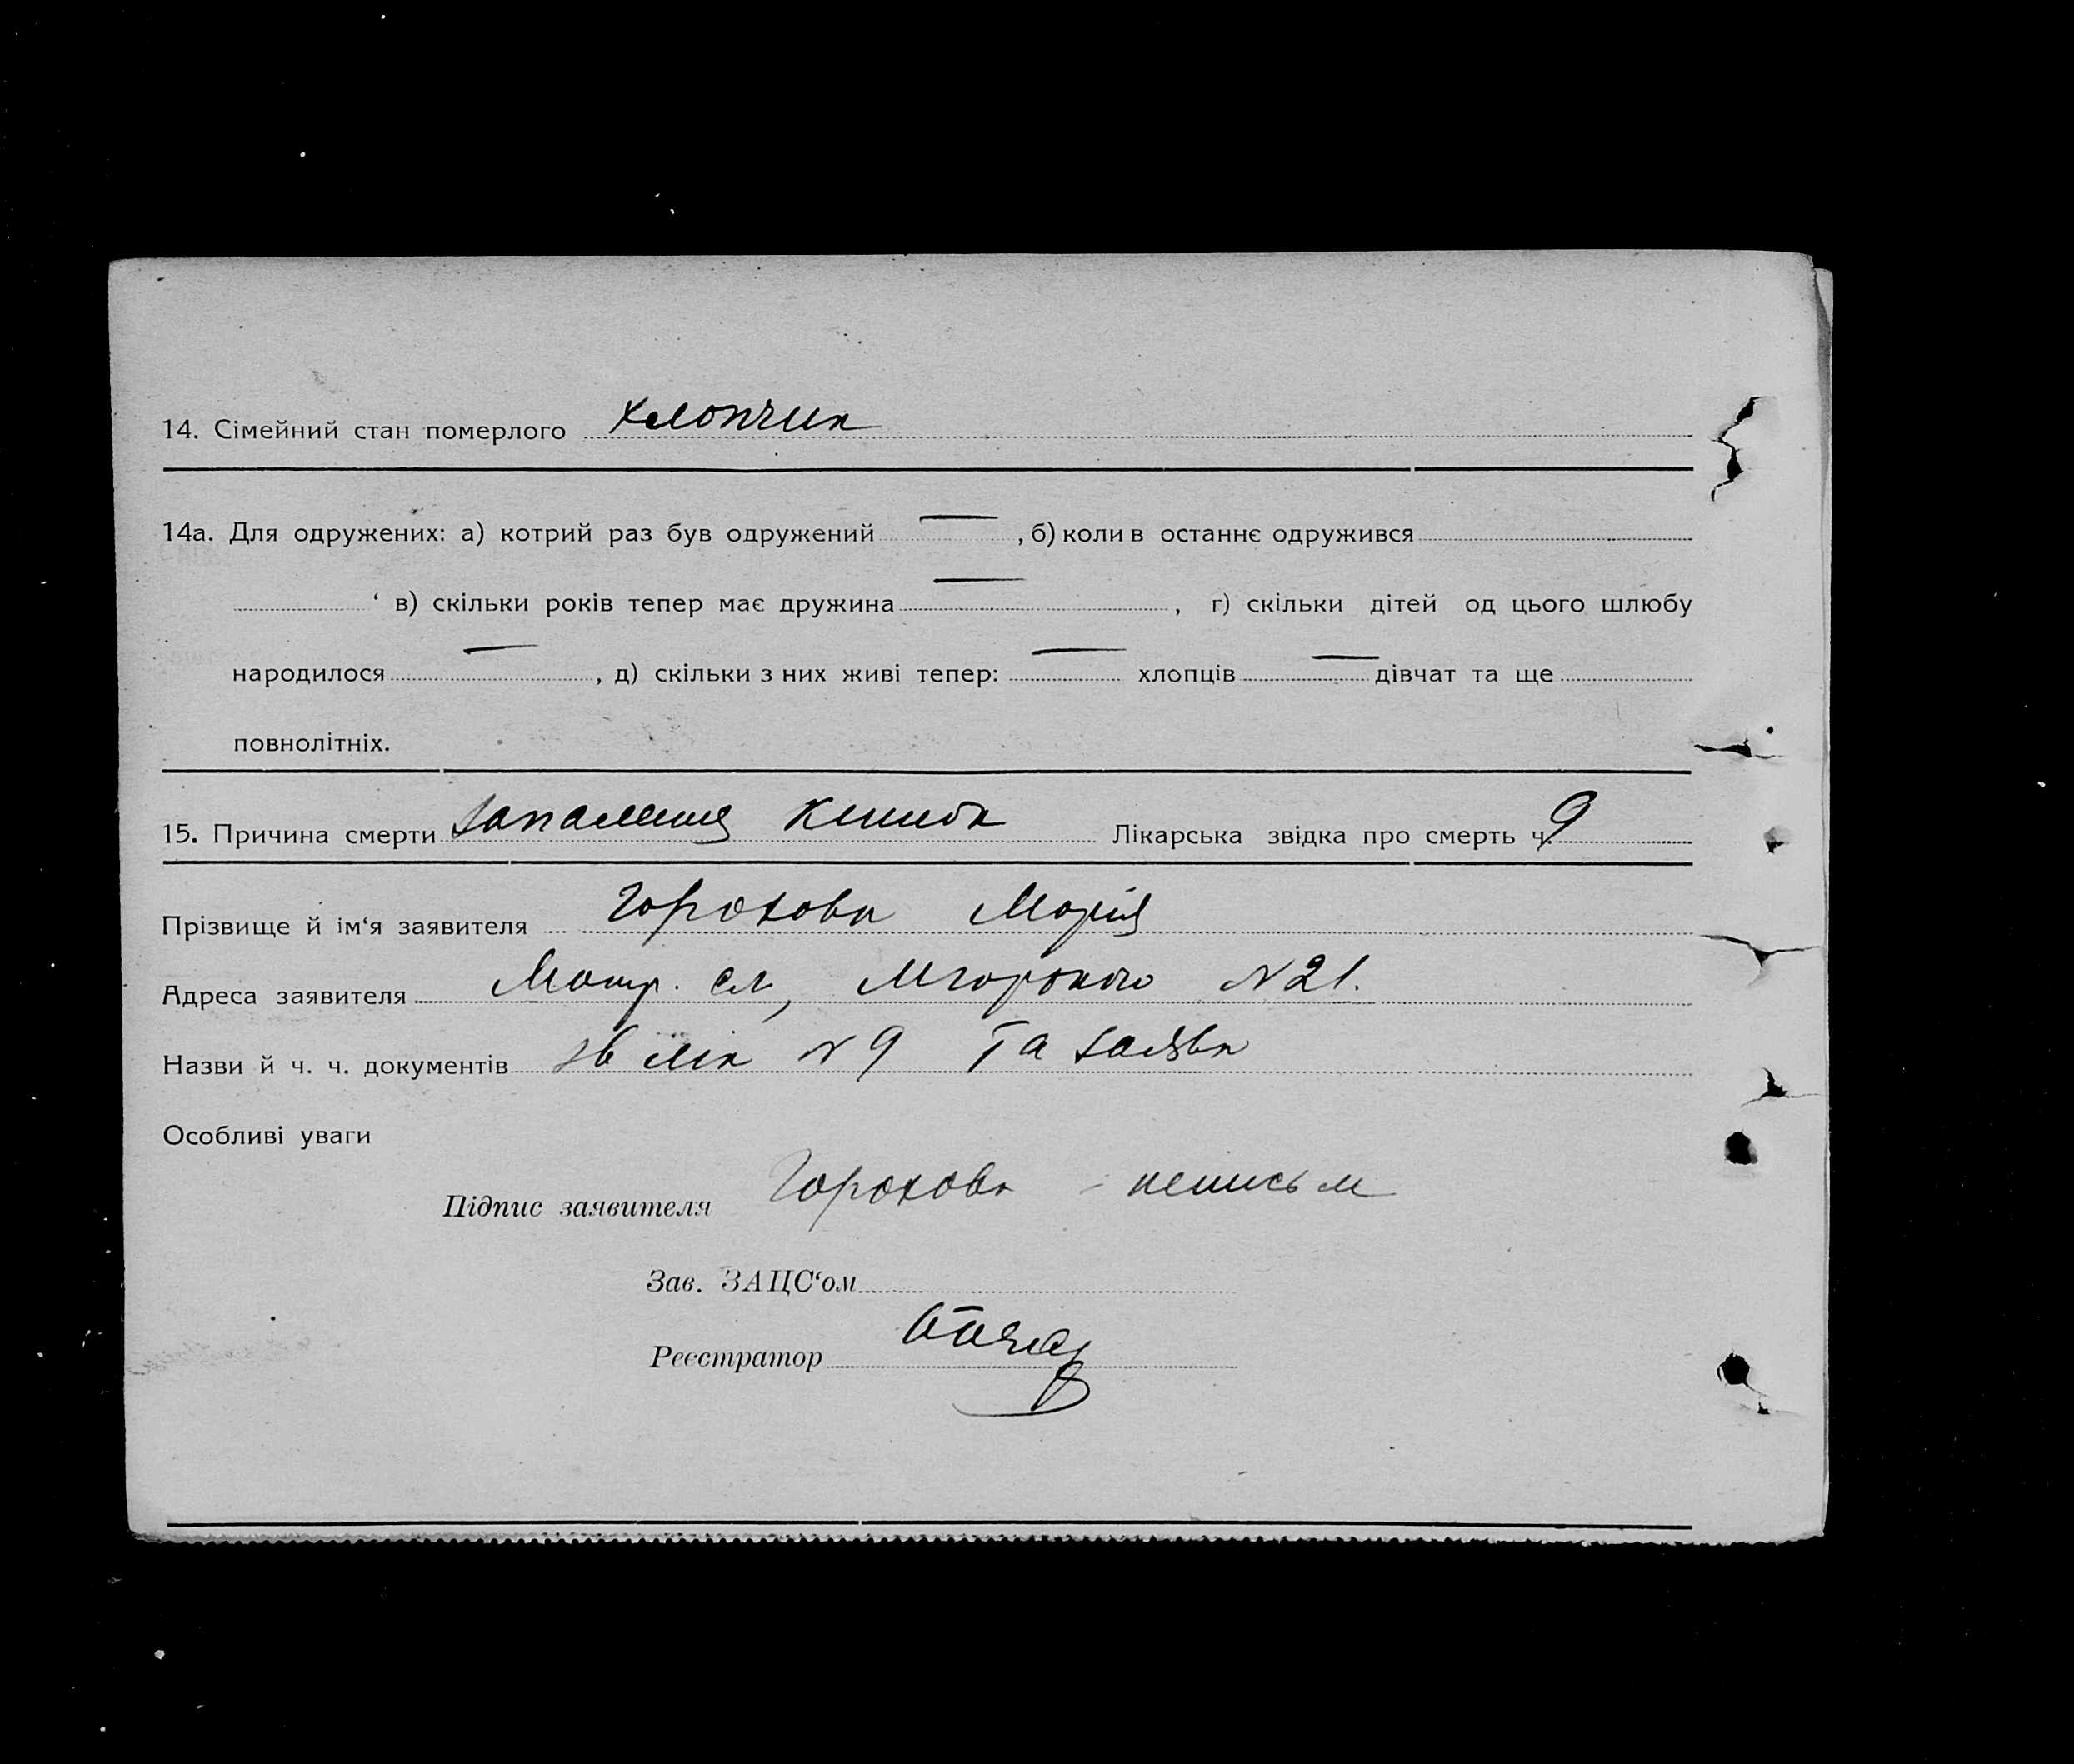 14. Сімейний стан померлого хлопчик
14а. Для одружених: а) котрий раз був одружений — , б) коли в останнє одружився
‘ в) скільки років тепер має дружина — , г) скільки дітей од цього шлюбу
народилося — , д) скільки з них живі тепер: — хлопців — дівчат та ще
повнолітніх.
15. Причина смерти запалення кишок Лікарська звідка про смерть ч. 9
Прізвище й ім‘я заявителя Горохова Марія
Адреса заявителя сл, М Горького N 21.
Назви й ч. ч. документів зв лік N 9 та заява
Особливі уваги
Підпис заявителя Горохова - неписьм
Зав. ЗАЦС‘ом
Реєстратор